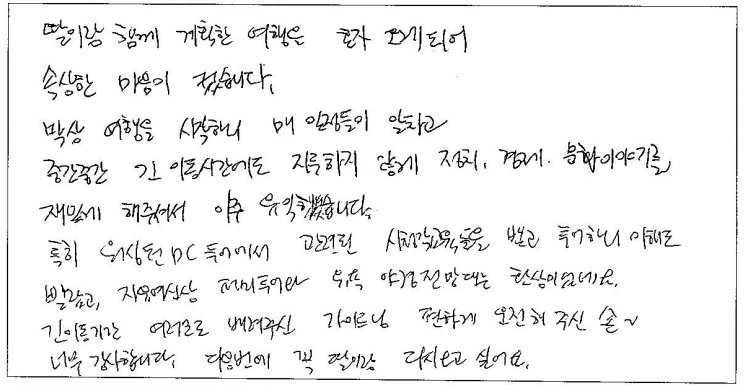 딸이랑 함께 계획한 여행은 혼자 오게되어
속상한 마음이 컸습니다.
막상 여행을 시작하니 매 일정들이 알차고
중간중간 긴 이동시간에도 지루하지 않게 정치, 경제, 문화이야기를
재밌게 해주셔서 아주 유익했습니다.
특히 워싱턴 DC 투어에서 관련된 시청각교육들을 받고 투어하니 이해도
빨랐고, 자유여신상 페리투어와 뉴욕 야경전망대는 환상이었네요.
긴이동기간 여러모로 배려주신 가이드님 편하게 운전해 주신
너무 감사합니다. 다음번에 꼭 딸이랑 다시오고 싶어요.